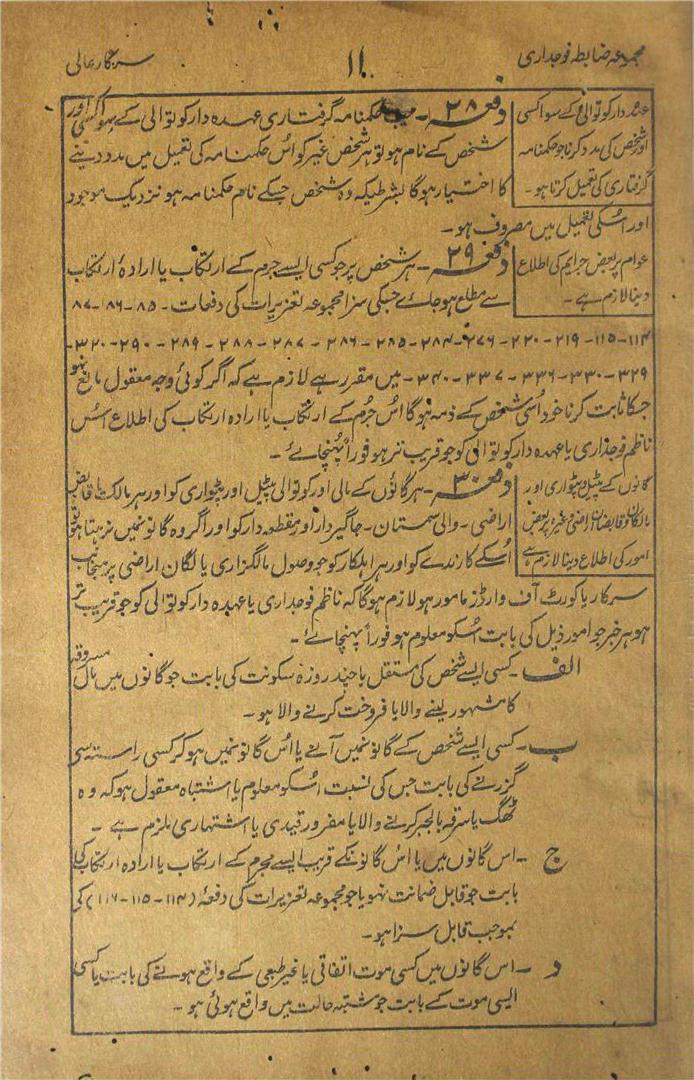 مجموعہ ضابطہ فوجداری
۱۱
سرکار عالی
عہدہ دار کوتوالی کے سوا کسی
اور شخص کی مدد کرنا جو حکمنامہ
گرفتاری کی تعمیل کرتا ہو۔
دفعہ ۲۸ ۔ جب حکمنامہ گرفتاری عہدہ دار کوتوالی کے سوا کسی اور
شخص کے نام ہو تو ہر شخص غیر کو اس حکمنامہ کی تعمیل میں مدد دینے
کا اختیار ہوگا بشرطیکہ وہ شخص جسکے نام حکمنامہ ہو نزدیک موجود
اور اسکی تعمیل میں مصروف ہو۔
عوام پر بعض جرایم کی اطلاع
دینا لازم ہے ۔
دفعہ ۲۹ ۔ ہر شخص پر جو کسی ایسے جرم کے ارتکاب یا ارادہ ارتکاب
سے مطلع ہو جائے جسکی سزا مجموعہ تعزیرات کی دفعات ۔ ۸۵ ۔ ۸۶ ۔ ۸۷
۱۱۴ ۔ ۱۱۵ ۔ ۲۱۹ ۔ ۲۲۰ ۔ ۲۷۶ ۔ ۲۸۴ ۔ ۲۸۵ ۔ ۲۸۶ ۔ ۲۸۷ ۔ ۲۸۸ ۔ ۲۸۹ ۔ ۲۹۰ ۔ ۳۲۰ ۔
۳۲۹ ۔ ۳۳۰ ۔ ۳۳۶ ۔ ۳۳۷ ۔ ۳۴۰ ۔ میں مقرر ہے لازم ہے کہ اگر کوئی وجہ معقول مانع نہو
جسکا ثابت کرنا خود اسی شخص کے ذمہ ہوگا اس جرم کے ارتکاب یا ارادہ ارتکاب کی اطلاع اس
ناظم فوجداری یا عہدہ دار کوتوالی کو جو قریب تر ہو فوراً پہنچائے ۔
گانوں کے پٹیل و پٹواری اور
مالکان و قابضان اراضی وغیرہ پر بعض
امور کی اطلاع دینا لازم ہے
دفعہ ۳۰ ۔ ہر گانوں کے مالی اور کوتوالی پٹیل اور پٹواری کو اور ہر مالک یا قابض
اراضی ۔ والی سمستان ۔ جاگیردار اور مقطعہ دار کو اور اگر وہ گانو نمیں نرہتا ہو تو
اسکے کارندے کو اور ہر اہلکار کو جو وصول مالگزاری یا لگان اراضی پر منجانب
سرکار یا کورٹ آف وارڈز مامور ہو لازم ہوگا کہ ناظم فوجداری یا عہدہ دار کوتوالی کو جو قریب تر
ہو ہر خبر جو امور ذیل کی بابت اسکو معلوم ہو فوراً پہنچائے ۔
الف ۔ کسی ایسے شخص کی مستقل یا چند روزہ سکونت کی بابت جو گانوں میں مال مسروقہ
کا مشہور لینے والا یا فروخت کرنے والا ہو ۔
ب ۔ کسی ایسے شخص کے گانو نمیں آنے یا اس گانو نمیں ہو کر کسی راستہ سے
گزرنے کی بابت جس کی نسبت اسکو معلوم یا اشتباہ معقول ہو کہ وہ
ٹھگ یا سرقہ بالجبر کرنے والا یا مفرور قیدی یا اشتہاری ملزم ہے ۔
ج ۔ اس گانوں میں یا اس گانو نکے قریب ایسے جرم کے ارتکاب یا ارادہ ارتکاب کی
بابت جو قابل ضمانت نہو یا جو مجموعہ تعزیرات کی دفعہ (۱۱۴ ۔ ۱۱۵ ۔ ۱۱۶) کی
بموجب قابل سزا ہو ۔
د ۔ اس گانوں میں کسی موت اتفاقی یا غیر طبعی کے واقع ہونے کی بابت یا کسی
ایسی موت کے بابت جو مشتبہ حالت میں واقع ہوئی ہو ۔